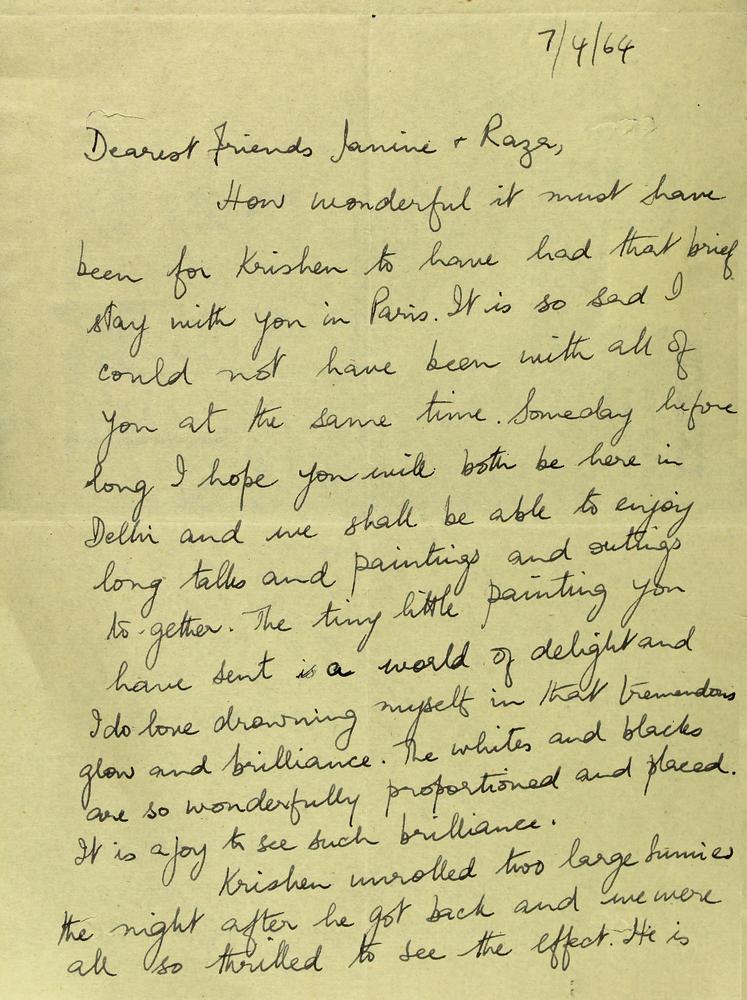 7/4/64
Dearest Friends Janine + Raza,
How wonderful it must have
been for Krishen to have had that brief
stay with you in Paris. It is so sad I
could not have been with all of
you at the same time. Someday before
long I hope you will both be here in
Delhi and we shall be able to enjoy
long talks and paintings and outings
to-gether. The tiny little painting you
have sent is a world of delight and
I do love drowning myself in that tremendous
glow and brilliance. The whites and blacks
are so wonderfully proportioned and placed.
It is a joy to see such brilliance.
Krishen unrolled two large Sumies
the night after he got back and we were
all so thrilled to see the effect. He is